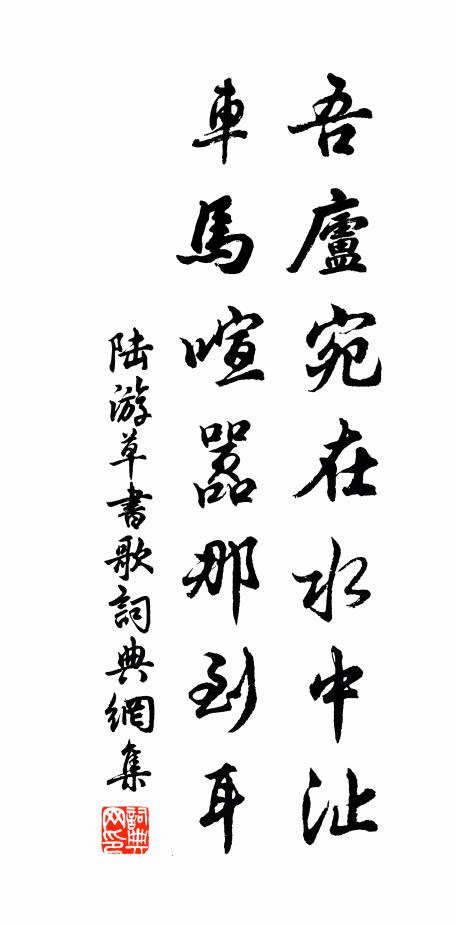 吾廬宛在水中沚
車馬喧嚣那到耳
陆游草書歌詞典網集
詞典网印